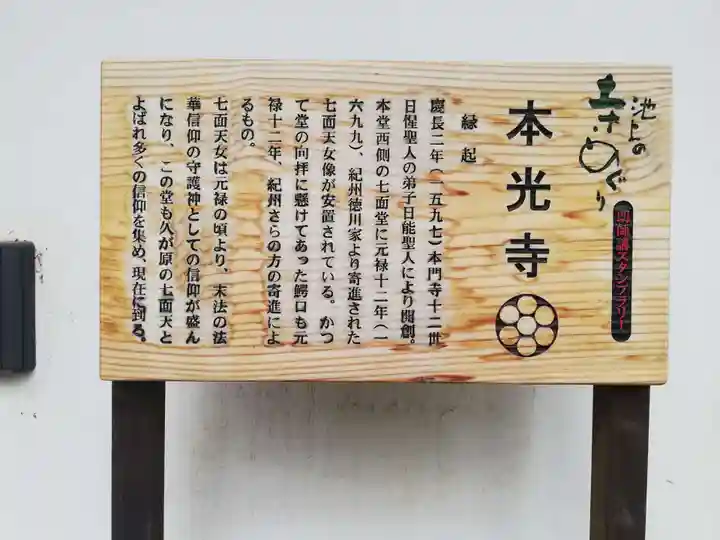 池上の
寺めぐり
御師講スタンプラリー
本光寺
縁起
慶長二年（一五九七）本門寺十二世
日惺聖人の弟子日能聖人により開創。
本堂西側の七面堂に元禄十二年（一
六九九）、紀州徳川家より寄進された
七面天女像が安置されている。かつ
て堂の向拝に懸けてあった鰐口も元
禄十二年、紀州さらの方の寄進によ
るもの。
七面天女は元禄の頃より、末法の法
華信仰の守護神としての信仰が盛ん
になり、この堂も久が原の七面天と
よばれ多くの信仰を集め、現在に到る。